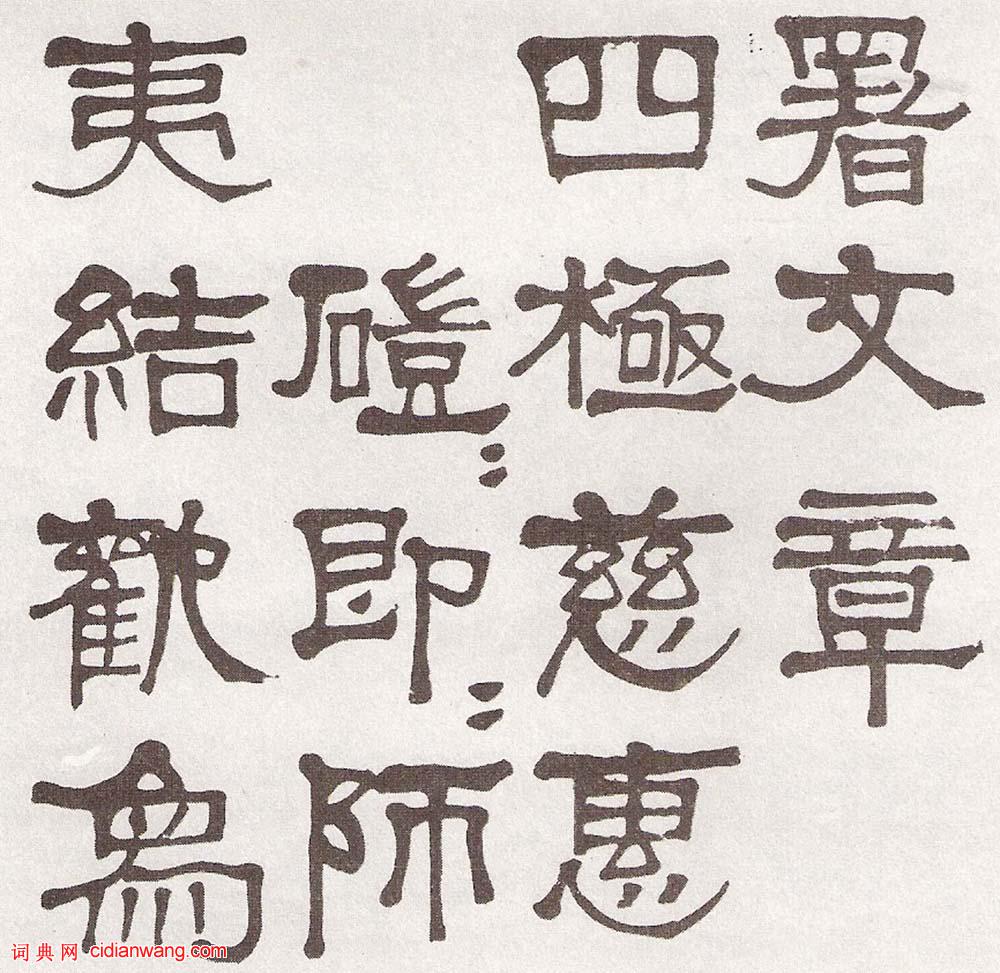 署文章
四極慈惠
磑〻即〻師
夷結歡象
词典网 cidianwang.com